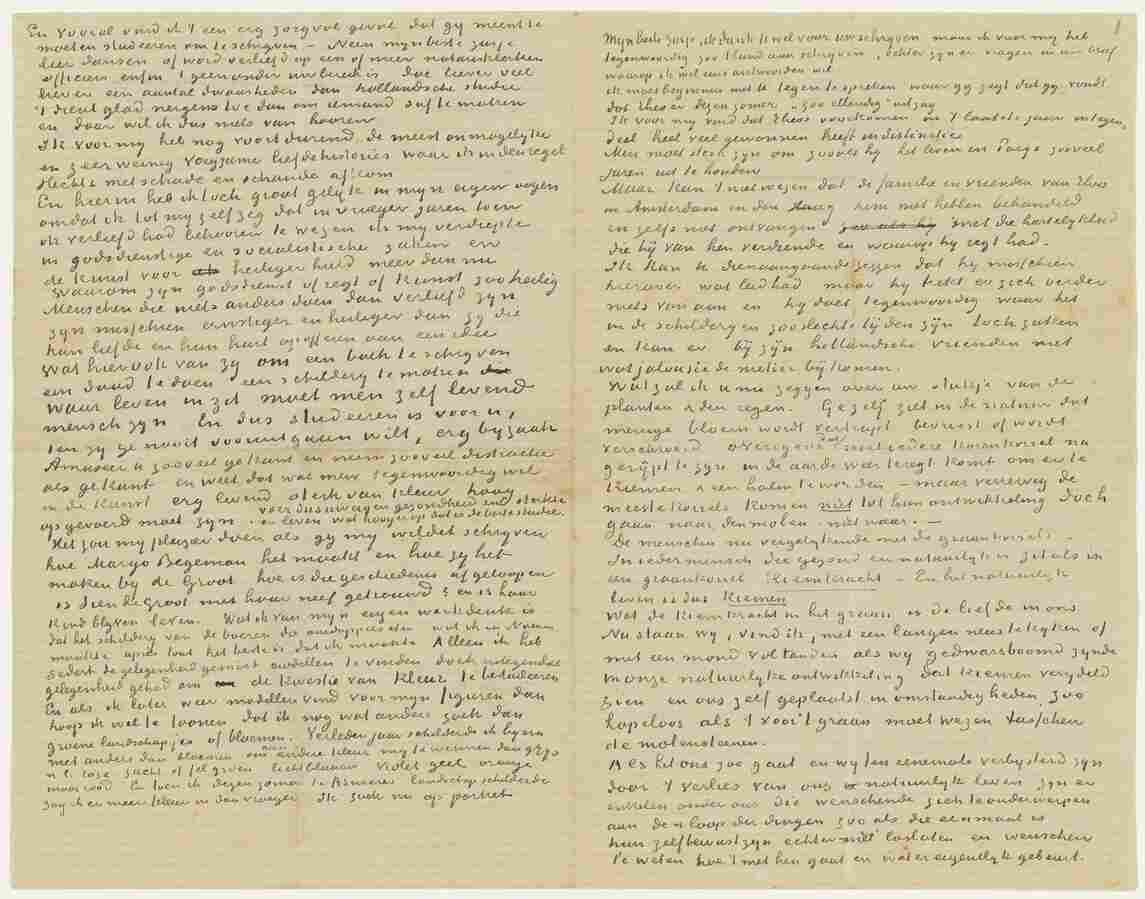 En vooral vind ik 't een erg zorgvol geval dat gy meent te
moeten studeeren om te schryven – Neen myn beste zusje
leer dansen of word verliefd op een of meer notarisklerken
officiers enfin 't geen onder uw bereik is doe liever veel
liever een aantal dwaasheden dan hollandsche studie
't dient glad nergens toe dan om iemand suf te maken
en daar wil ik dus niets van hooren
Ik voor my heb nog voortdurend de meest onmogelyke
en zeer weinig voegzame liefdehistories waar ik in den regel
slechts met schade en schande afkom
En hierin heb ik toch groot gelyk in myn eigen oogen
omdat ik tot my zelf zeg dat in vroeger jaren toen
ik verliefd had behooren te wezen ik my verdiepte
in godsdienstige en socialistische zaken en
de kunst voor heiliger hield meer dan nu
Waarom zyn godsdienst of regt of kunst zoo heilig
Menschen die niets anders doen dan verliefd zyn
zyn misschien ernstiger en heiliger dan zy die
hun liefde en hun hart opofferen aan een idee
Wat hier ook van zy om een boek te schryven
een daad te doen een schildery te maken
waar leven in zit moet men zelf levend
mensch zyn En dus studeeren is voor u,
ten zy ge nooit vooruitgaan wilt, erg byzaak
Amuseer u zooveel ge kunt en neem zooveel distractie
als ge kunt en weet dat wat men tegenwoordig wil
in de kunst erg levend sterk van kleur hoog
opgevoerd moet zyn. voer dus uw eigen gezondheid en sterkte
en leven wat hooger op dat is de beste studie.
Het zou my plezier doen als gy my wildet schryven
hoe Margo Begeman het maakt en hoe zy het
maken by de Groot hoe is die geschiedenis afgeloopen
is Sien de Groot met haar neef getrouwd? en is haar
kind blyven leven. Wat ik van myn eigen werk denk is
dat het schildery van de boeren die aardappels eten wat ik in Nuenen
maakte après tout het beste is dat ik maakte Alleen ik heb
sedert de gelegenheid gemist modellen te vinden doch integendeel
gelegenheid gehad om de kwestie van kleur te bestudeeren
En als ik later weer modellen vind voor myn figuren dan
hoop ik wel te toonen dat ik nog wat anders zoek dan
groene landschapjes of bloemen. Verleden jaar schilderde ik byna
niet anders dan bloemen om aan andere kleur my te wennen dan grys
n.l. rose zacht of fel groen lichtblauw violet geel oranje
mooi rood En toen ik dezen zomer te Asnieres landschap schilderde
zag ik er meer kleur in dan vroeger Ik zoek nu op portret
1
Myn beste zusje, ik dank u wel voor uw schryven maar ik voor my heb
tegenwoordig zoo 't land aan schryven, echter zyn er vragen in uw brief
waarop ik wel eens antwoorden wil
ik moet beginnen met u tegen te spreken waar gy zegt dat gy vondt
dat Theo er dezen zomer „zoo ellendig” uitzag
Ik voor my vind dat Theos voorkomen in 't laatste jaar integen,
deel heel veel gewonnen heeft in distinctie
Men moet sterk zyn om zooals hy het leven in Parys zooveel
jaren uit te houden
Maar kan 't niet wezen dat de familie en vrienden van Theo
in Amsterdam en den Haag hem niet hebben behandeld
en zelfs niet ontvangen zoo als hy met die hartelykheid
die hij van hen verdiende en waarop hy regt had.
Ik kan u dienaangaande zeggen dat hy misschien
hierover wat leed had maar hy trekt er zich verder
niets van aan en hy doet tegenwoordig waar het
in de schilderyen zoo slechte tijden zijn toch zaken
en kan er bij zijn hollandsche vrienden niet
wat jalousie de metier bij komen.
Wat zal ik u nu zeggen over uw stukje van de
planten & den regen. Ge zelf ziet in de natuur dat
menige bloem wordt vertrapt bevriest of wordt
verschroeid overigens dat niet iedere korenkorrel na
gerijpt te zyn in de aarde weer teregt komt om er te
kiemen & een halm te worden – maar verreweg de
meeste korrels komen niet tot hun ontwikkeling doch
gaan naar den molen – niet waar. –
De menschen nu vergelykende met de graankorrels –
In ieder mensch die gezond en natuurlyk is zit als in
een graankorrel kiemkracht – En het natuurlyk
leven is dus kiemen
Wat de kiemkracht in het graan is de liefde in ons
Nu staan wy, vind ik, met een langen neus te kyken of
met een mond vol tanden als wy gedwarsboomd zynde
in onze natuurlyke ontwikkeling dat kiemen verydeld
zien en ons zelf geplaatst in omstandigheden zoo
hopeloos als 't voor 't graan moet wezen tusschen
de molensteenen.
Als het ons zoo gaat en wy ten eenemale verbysterd zyn
door 't verlies van ons natuurlyk leven zyn er
enkelen onder ons die wenschende zich te onderwerpen
aan den loop der dingen zoo als die eenmaal is
hun zelfbewustzyn echter niet loslaten en wenschen
te weten hoe 't met hen gaat en wat er eigentlyk gebeurt.